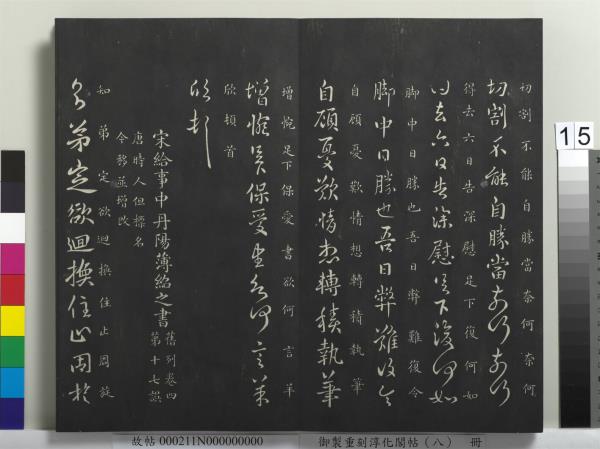 切割不能自勝當奈何奈何
切割不能自勝當奈何奈何
得去六日告深慰足下復何如
得去六日告深慰足下復何如
脚中日勝也吾日弊難復令
脚中日勝也吾日弊難復令
自顧憂歎情想轉積執筆
自顧憂歎情想轉積執筆
增惋足下保愛書欲何言羊
增惋足下保愛書欲何言羊
欣頓首
欣頓首
宋給事中丹陽薄紹之書
舊列卷四
第十七誤
唐時人但標名
今移並增改
知弟定欲迴換住止周旋
知弟定欲迴換住止周旋
15
故帖 000211N000000000 御製重刻淳化閣帖（八） 冊